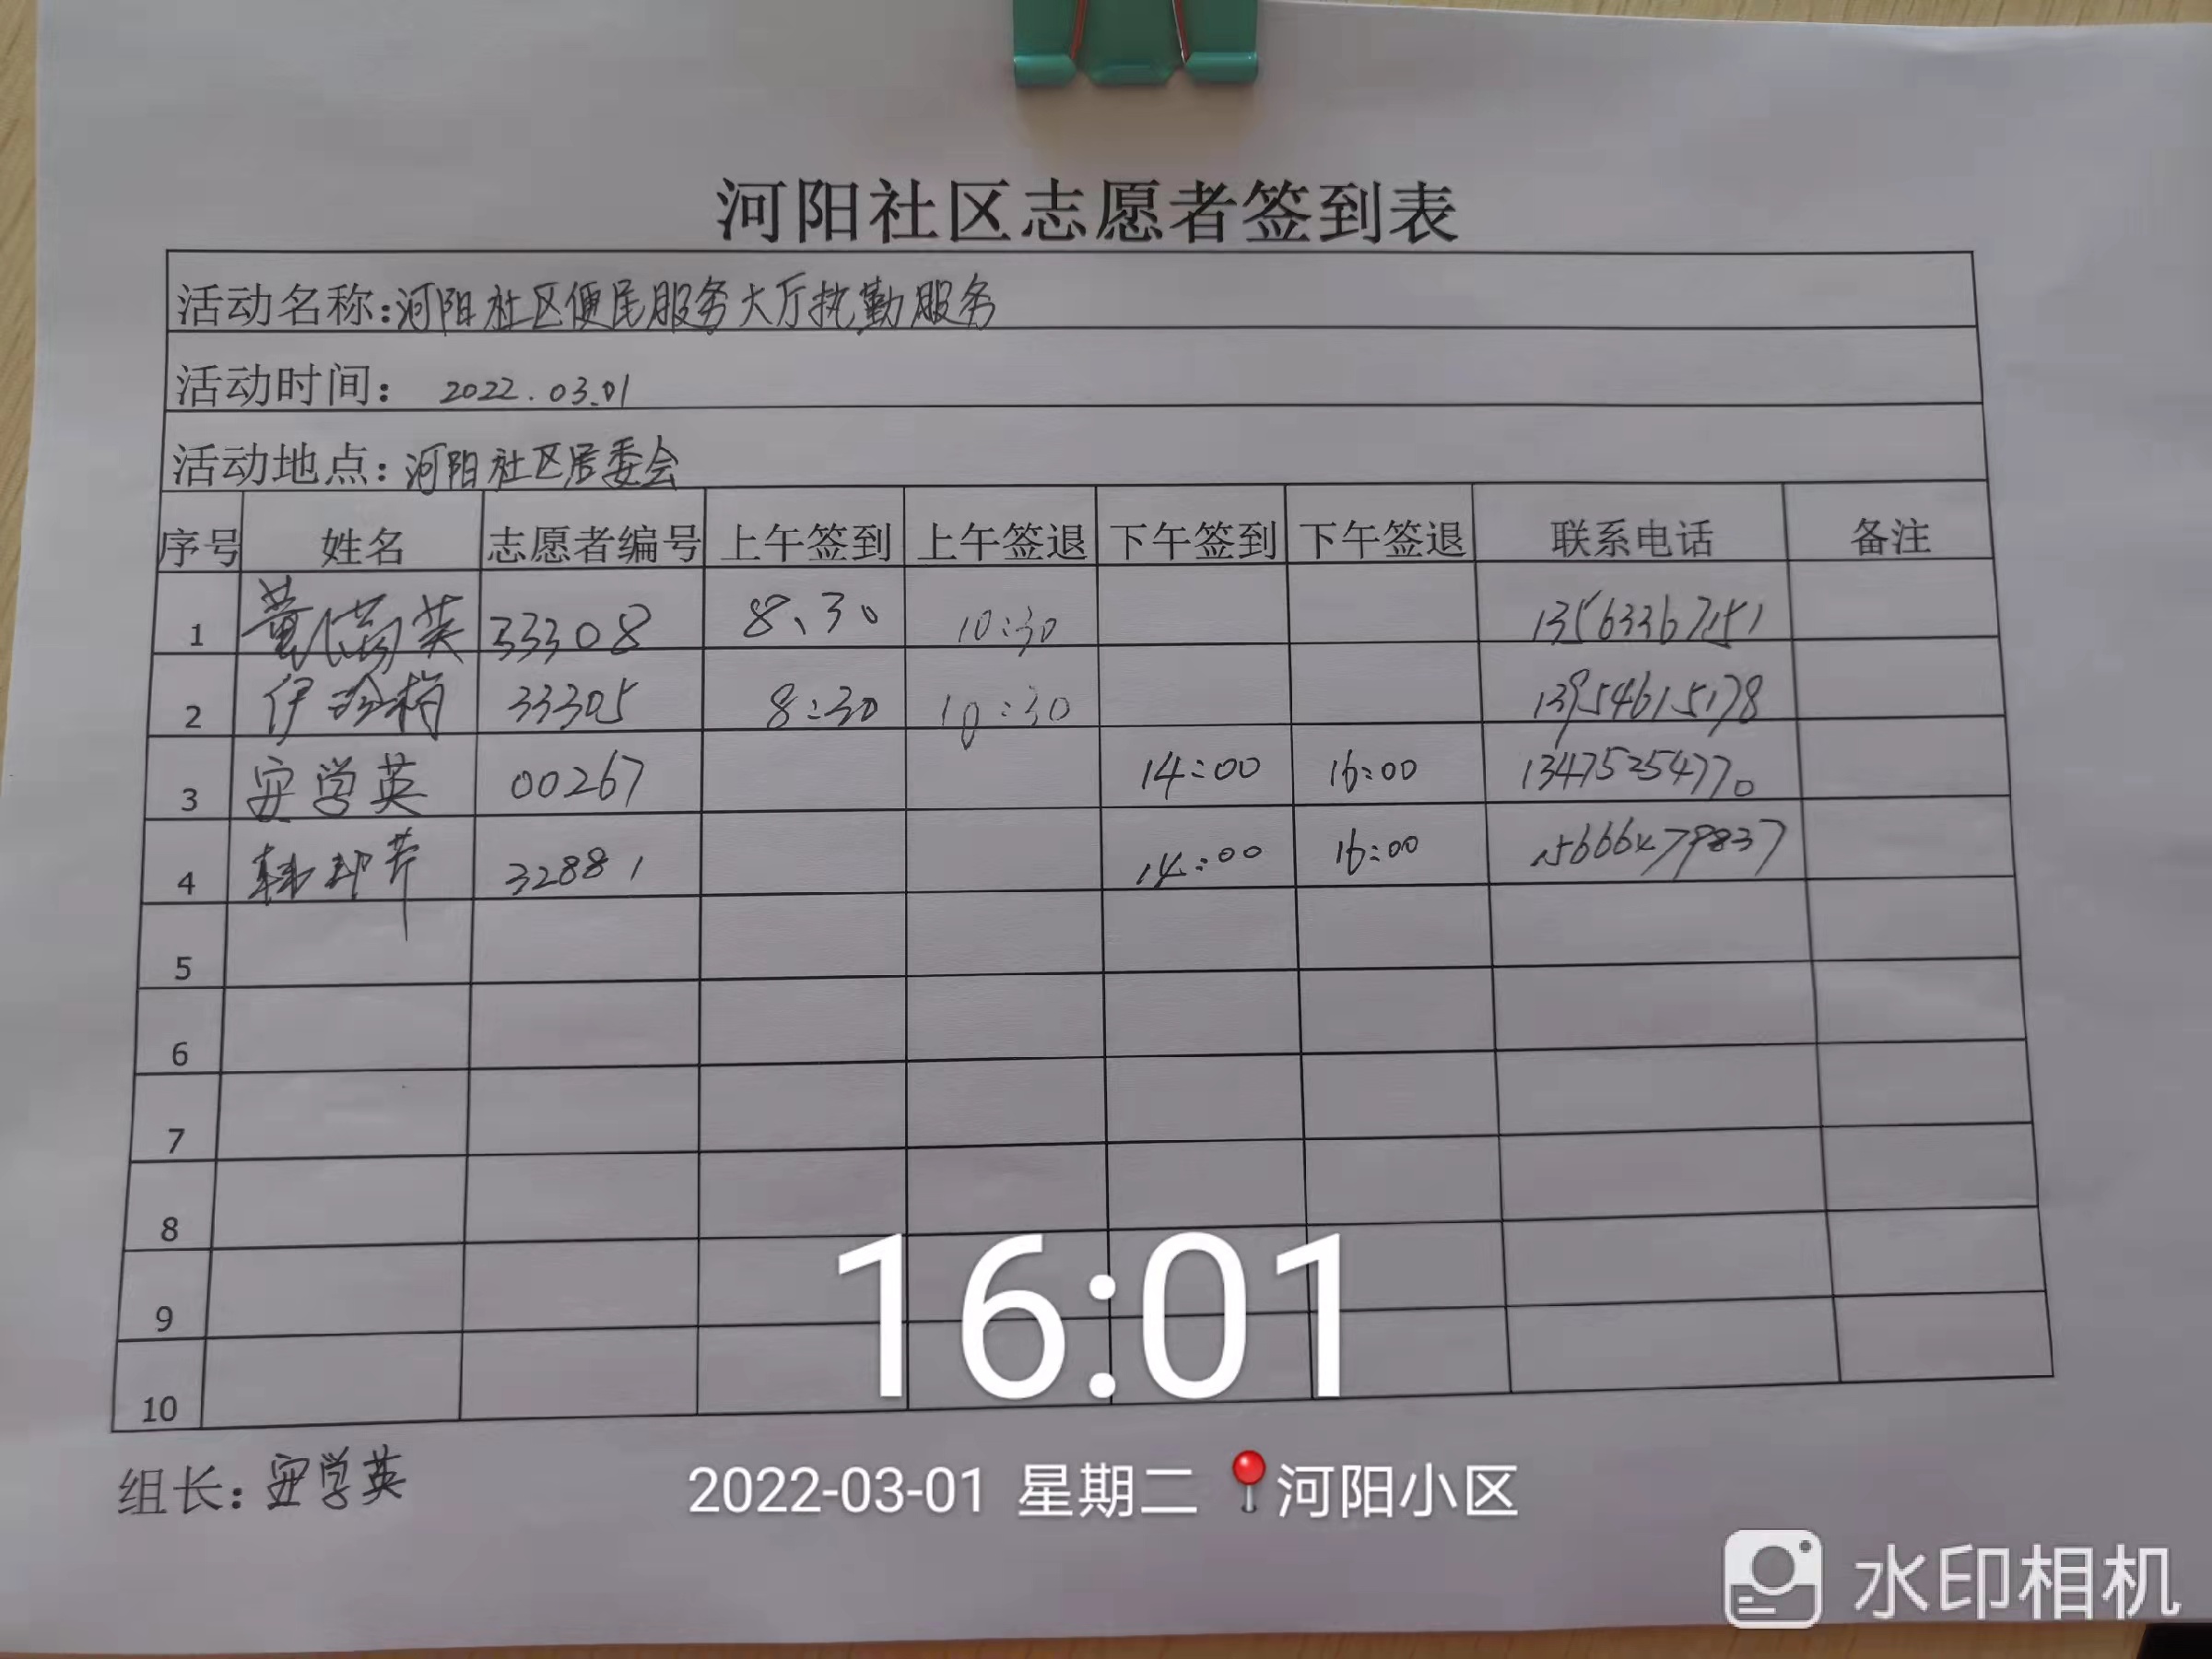 河阳社区志愿者签到表
活动名称:河阳社区便民服务大厅执勤服务
活动时间: 2022.03.01
活动地点:河阳社区居委会
序号 姓名 志愿者编号 上午签到 上午签退 下午签到 下午签退 联系电话 备注
1 董 英 33308 8、30 10:30
2 伊珍梅 33305 8:30 10:30 13954615178
3 安学英 00267 14:00 16:00 13475254770
4 韩 芹 32881 14:00 16:00 15666479837
5
6
7
8
9
10
16:01
组长:安学英
2022-03-01 星期二 河阳小区
水印相机